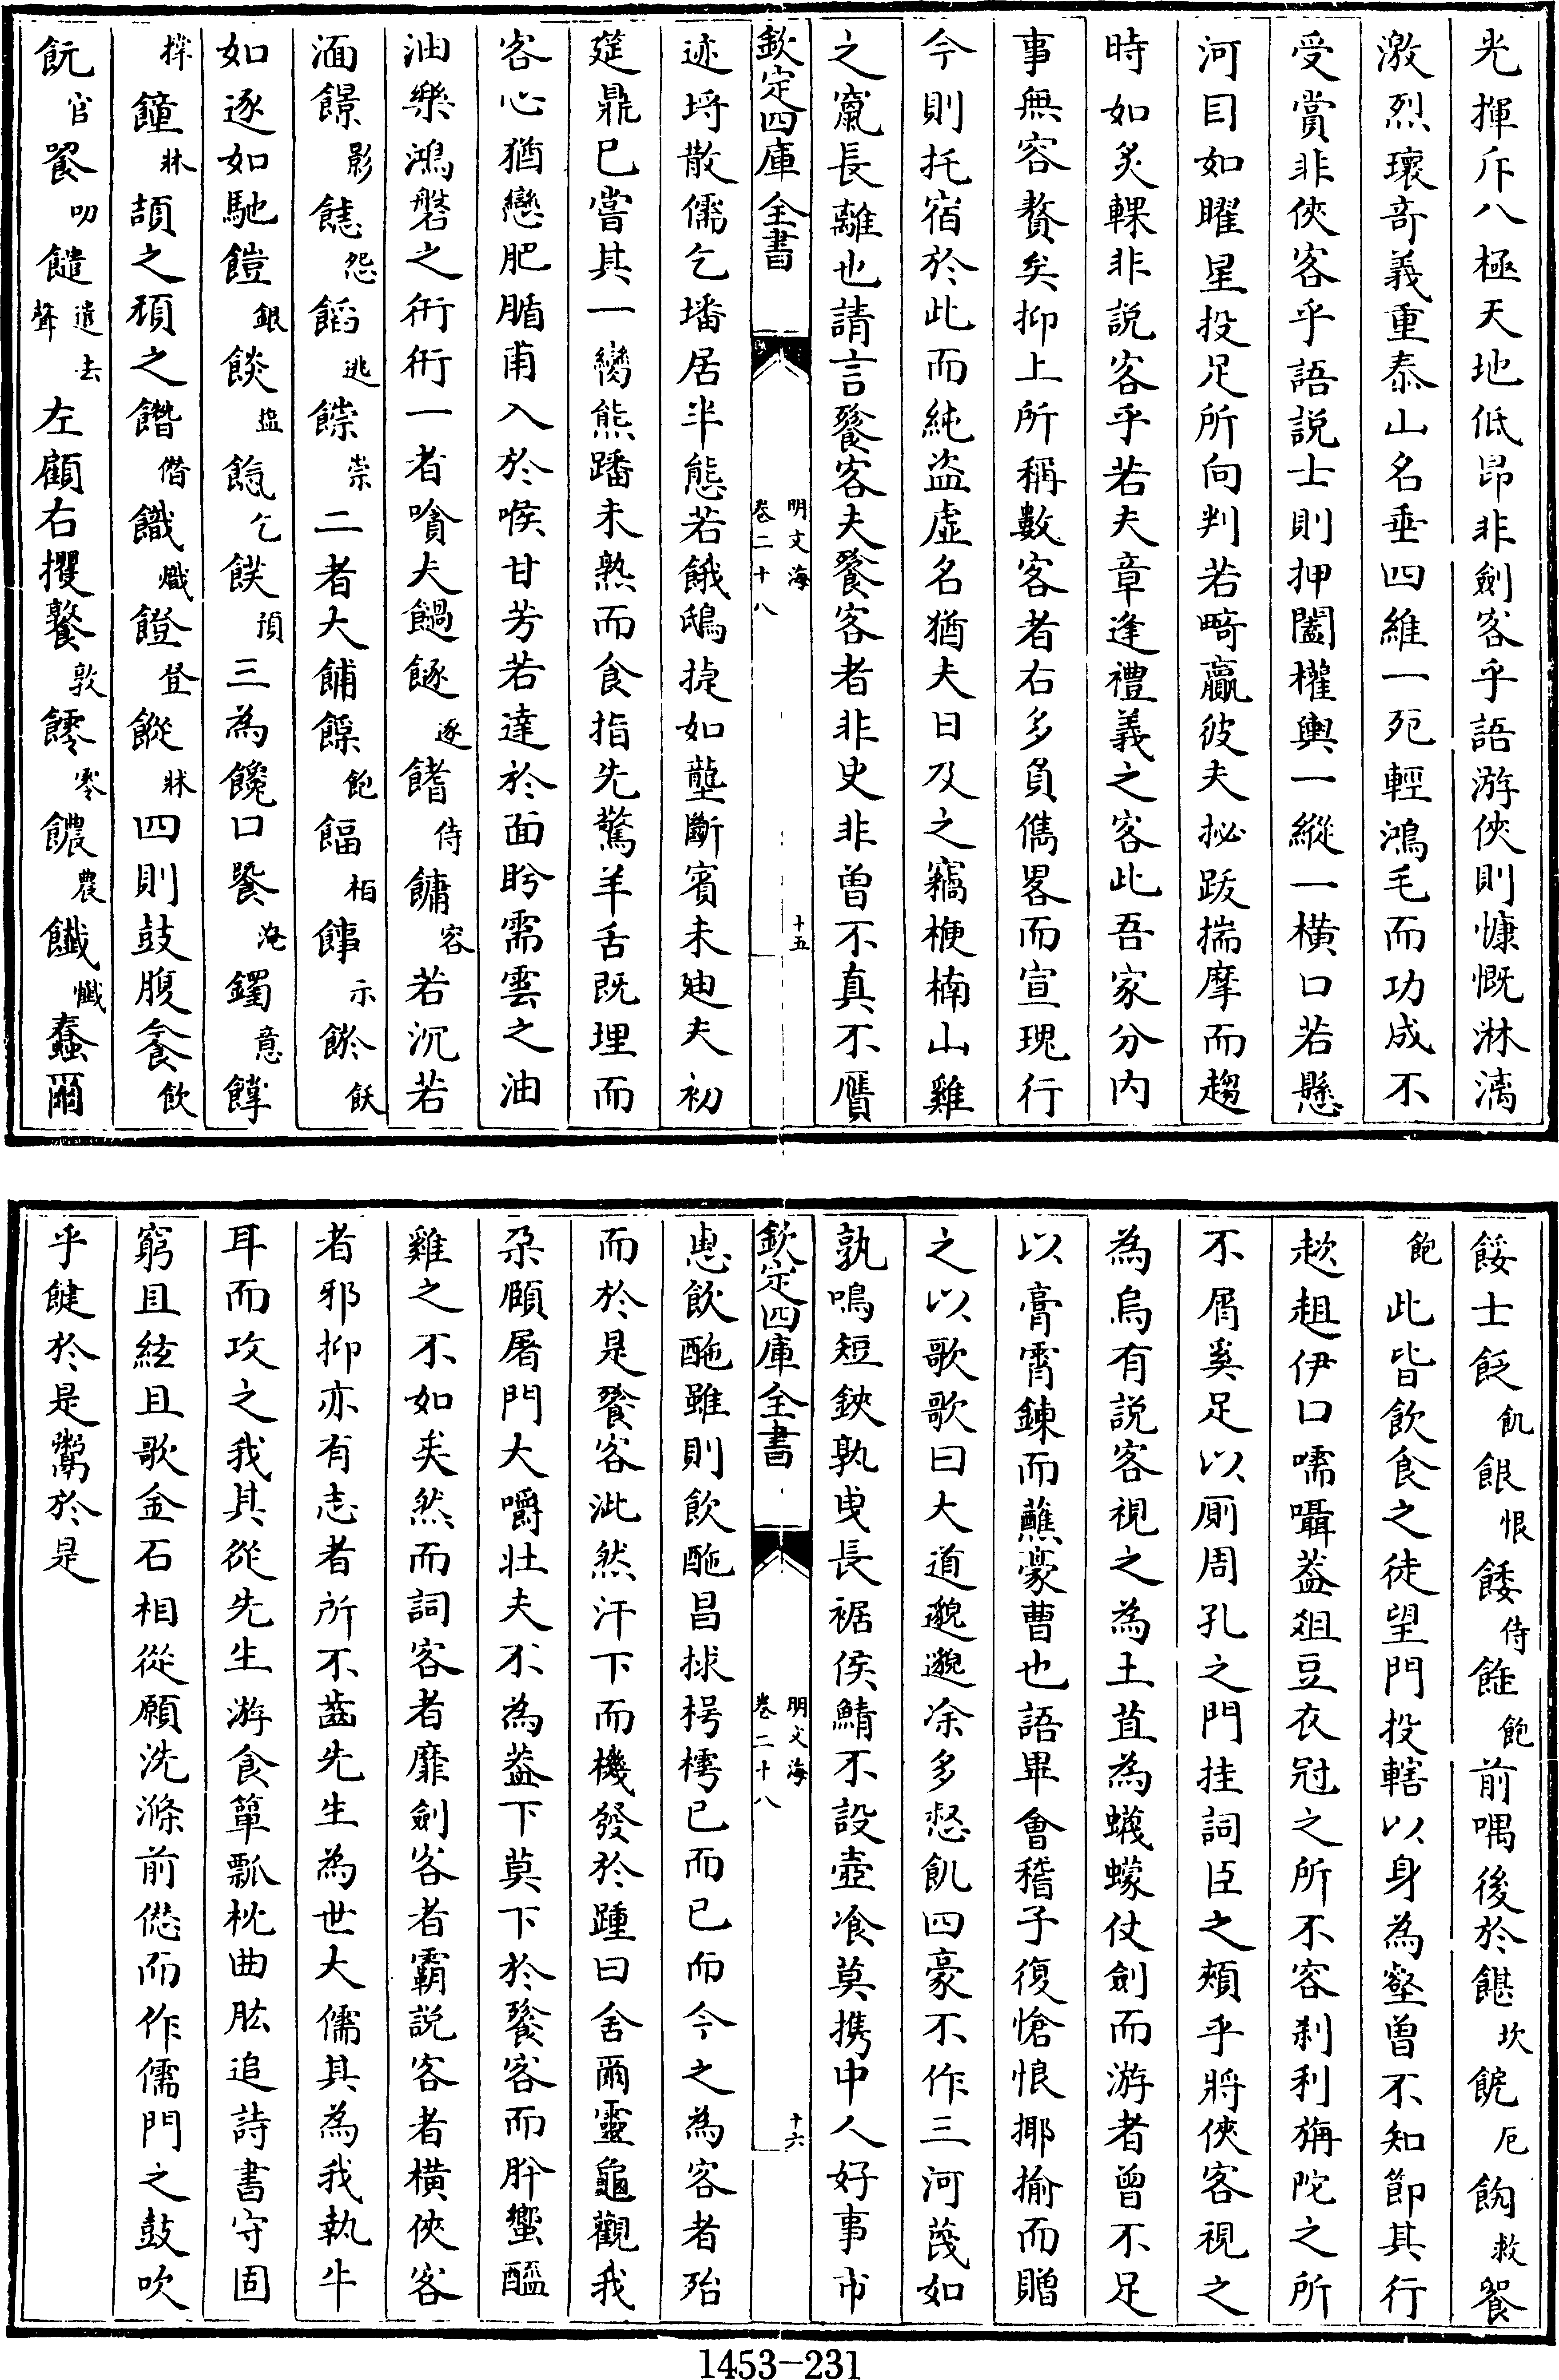 光揮斥八極天地低昂非劍客乎語游俠則慷慨淋漓
激烈瓌奇義重泰山名垂四維一死輕鴻毛而功成不
受賞非俠客乎語説士則押闔權輿一縱一橫口若懸
河目如曜星投足所向判若畸贏彼夫拟跋揣摩而趨
時如炙輠非説客乎若夫章逢禮義之客此吾家分内
事無容贅矣抑上所稱數客者右多負儁畧而宣瑰行
今則托宿於此而純盗虛名猶夫日及之竊楩楠山雞
之竄長離也請言餮客夫餮客者非史非曾不真不贋
欽定四庫全書
明文海
卷二十八
十五
迹埒散儒乞墦居半態若餓鴟捷如壟斷賓未廸夫初
筵鼎已嘗其一臠熊蹯未熟而食指先驚羊舌既埋而
客心猶戀肥腯甫入於喉甘芳若達於面盻需雲之油
油樂鴻磐之衎衎一者飻夫餲餯逐䭫侍𩜳容若沉若
湎䭘影𩜁怨饀逃䭥崇二者大餔餜飽餾栢䭄示䬵飫
如逐如馳䭓銀餤塩餼乞饃預三為饞口餍淹䥯意餑
撑𩞉牀頡之頏之䭙僭饎熾䭲登䭚牀四則鼓腹飡飲
飦官飺叨饉遣去聲左顧右攫𩜼敦𩜮零䭗農䭘懺蠢爾
餒士飪飢䬶恨餧侍䭃飽前喁後於餻坎䬹厄䬲救餐
飽此皆飲食之徒望門投轄以身為壑曾不知節其行
趑趄伊口嚅囁葢俎豆衣冠之所不容刹利旃陀之所
不屑奚足以厠周孔之門挂詞臣之頰乎將俠客視之
為烏有説客視之為土苴為蠛蠓仗劍而游者曾不足
以膏霄鍊而蘸豪曹也語畢會稽子復愴悢揶揄而贈
之以歌歌曰大道邈邈凃多愁飢四豪不作三河蔑如
孰鳴短鋏孰曳長裾侯鯖不設壺飡莫攜中人好事市
恵飲酏雖則飲酏昌捄枵樗已而已而今之為客者殆
而於是餮客泚然汗下而機發於踵曰舍爾靈龜觀我
朶頤屠門大嚼壯夫不為葢下莫下於餮客而肸蠁醯
雞之不如矣然而詞客者靡劍客者霸説客者橫俠客
者邪抑亦有志者所不齒先生為世大儒其為我執牛
耳而攻之我其從先生游食簞瓢枕曲肱追詩書守固
窮且絃且歌金石相從願洗滌前愆而作儒門之鼓吹
乎饘於是鬻於是
欽定四庫全書
明文海
卷二十八
十六
1453-231